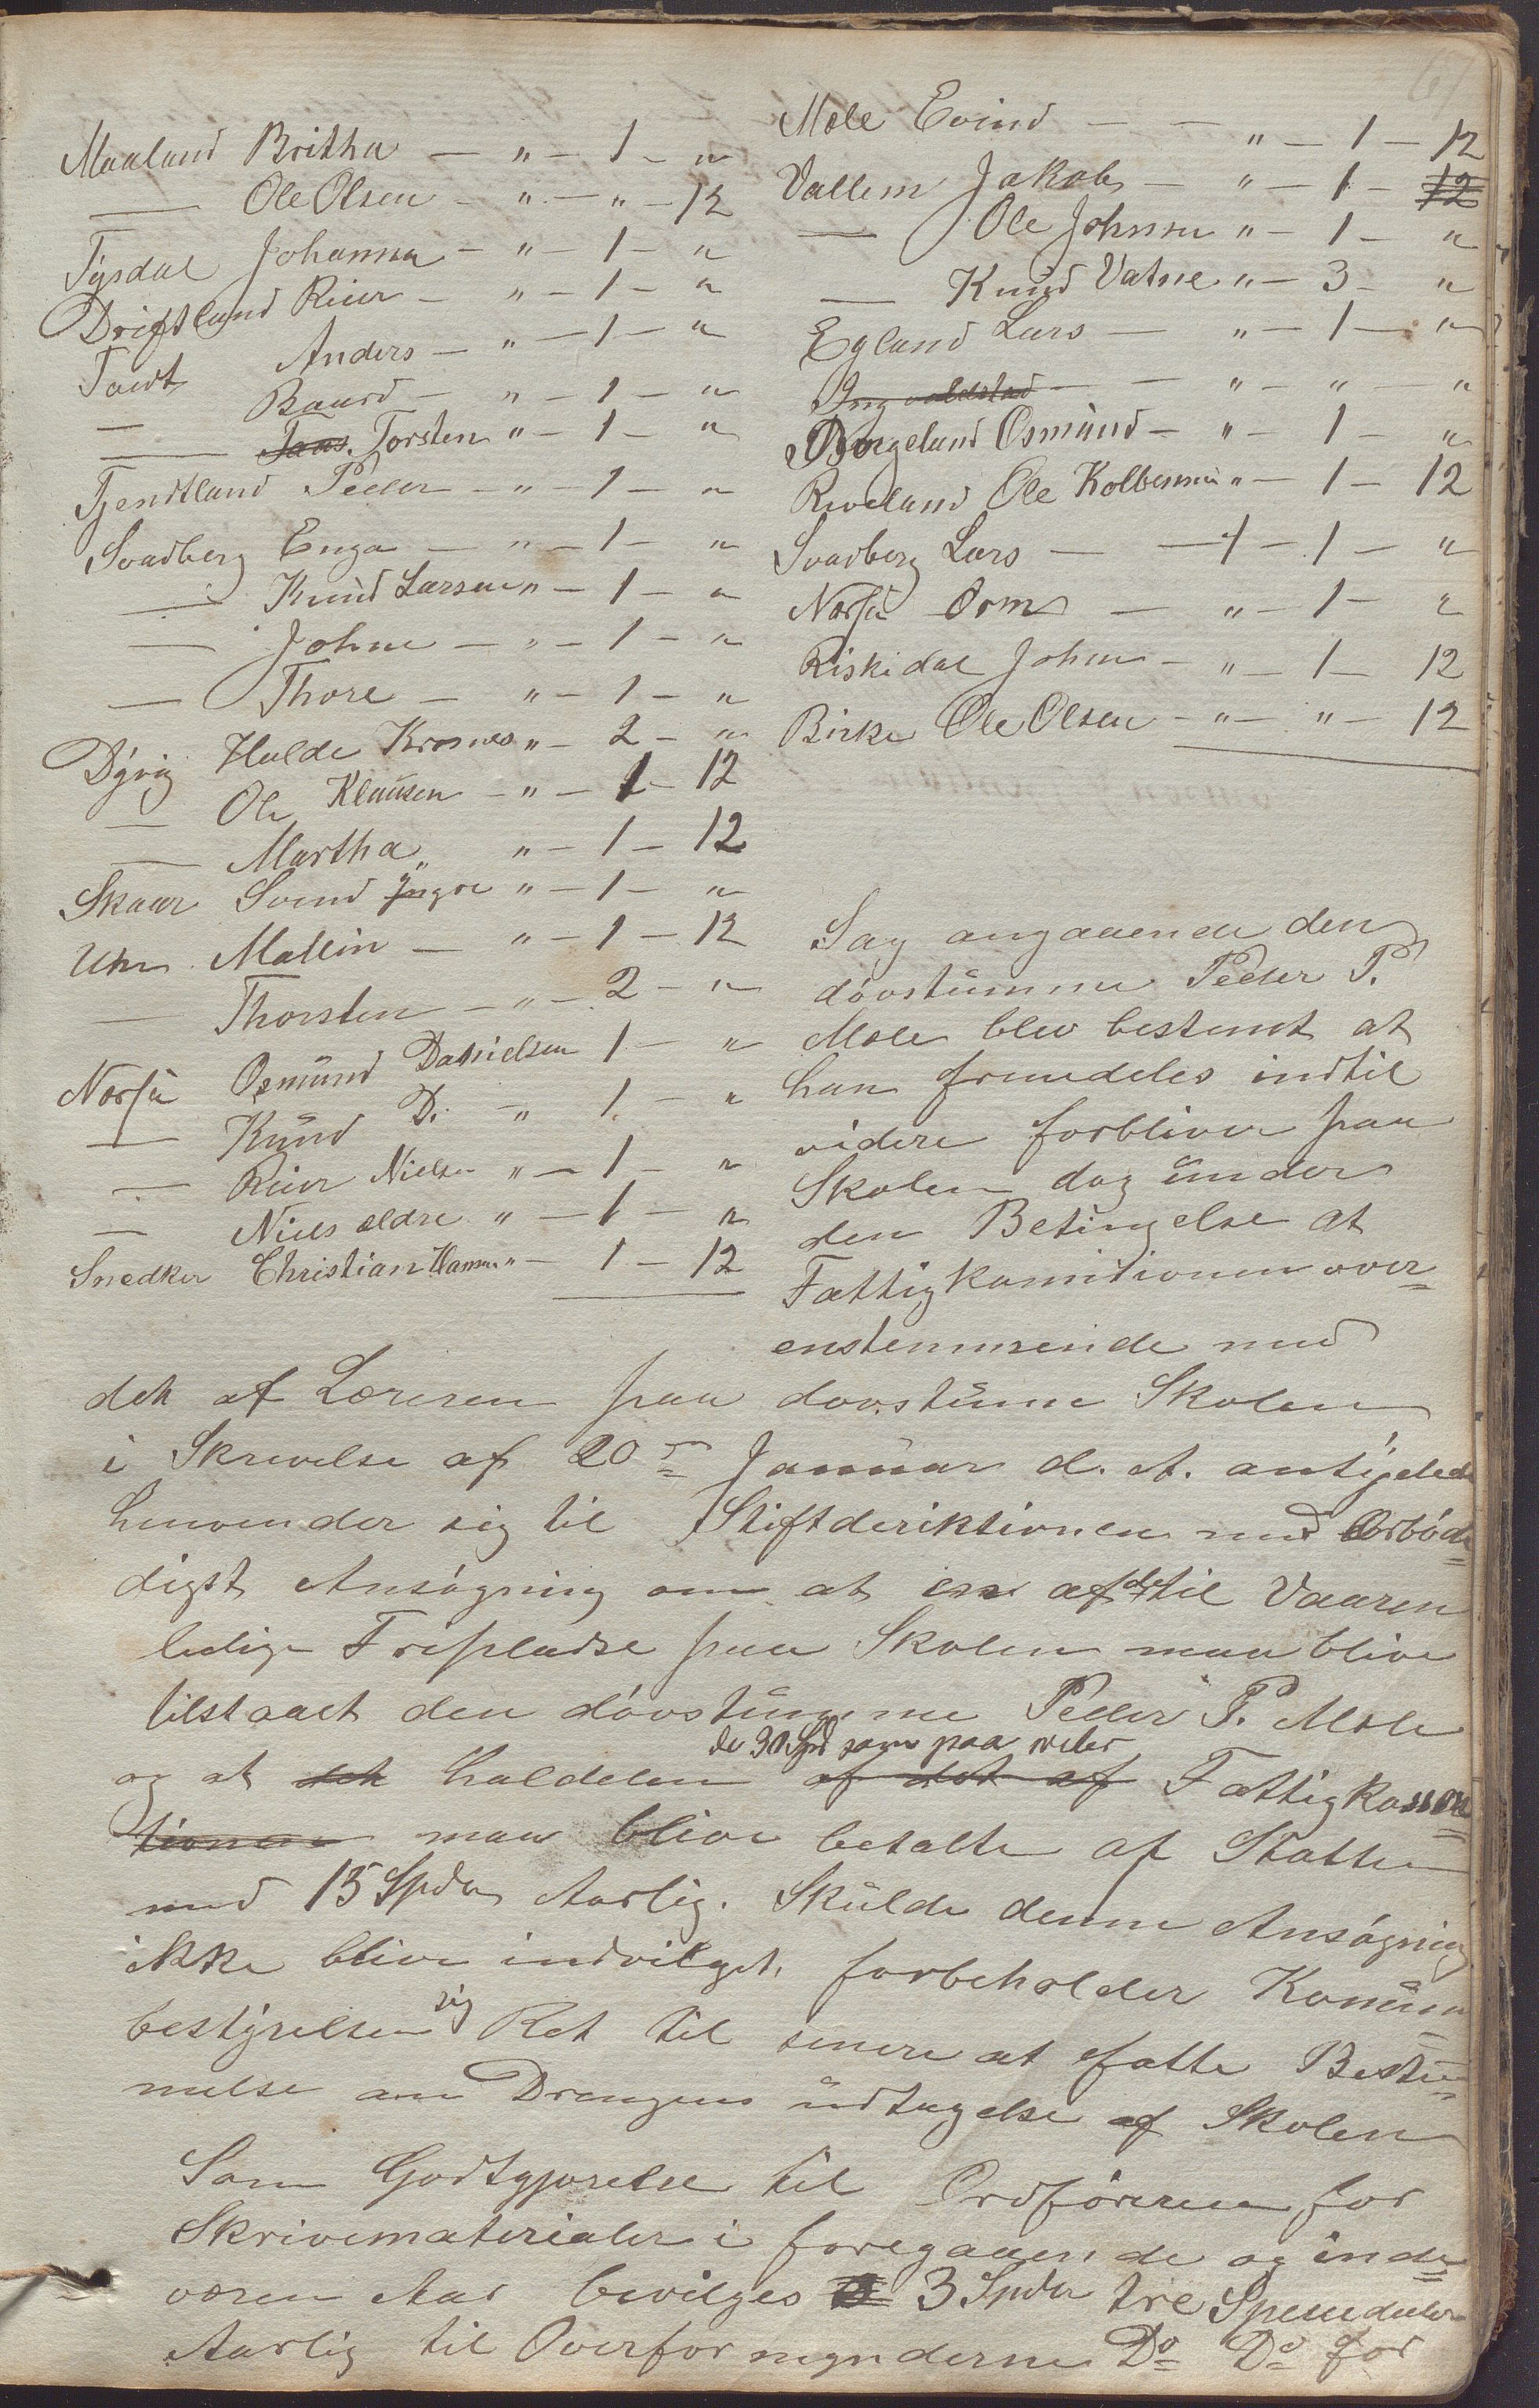 67
Maaland Britha — " — 1 — "
— Ole Olsen — " — " — 12
Tysdal Johanna — " — 1 — "
Driftland Reier — " — 1 — "
Tovdt Anders — " — 1 — "
— Baard — " — 1 — "
— Taas. Torsten " — 1 — "
Tjendtland Peder — " — 1 — "
Svadberg Enga — " — 1 — "
— Knud Larsen " — 1 — "
— Johne — " — 1 — "
— Thore — " — 1 — "
Dyvig Halde Krosnes " — 2 — "
— Ole Klausen — " — 1 — 12
— Martha " " — 1 — 12
Skaar Svend Yngre " — 1 — "
Uhr Mallin — " — 1 — 12
— Thorsten — " — 2 — "
Norsu Osmund Danielsen 1 — "
— Knud D. — " 1 — "
— Reier Nielsen " — 1 — "
— Niels ældre " — 1 — "
Snedker Christian Hansen " — 1 — 12
Mæle Evind — — " — 1 — 12
Vallem Jakob — " — 1 — 12
— Ole Johnsen " — 1 — "
— Knud Vatne " — 3 — "
Egland Lars — " — 1 — "
Ingvaldstad — — " — " — "
Bergeland Osmund — " — 1 — "
Riveland Ole Kolbensen " — 1 — 12
Svadberg Lars — — 1 — 1 — "
Norsu Orm — " — 1 — "
Riskidal John — " — 1 — 12
Birke Ole Olsen — " — " — 12
Sag angaaende den
døvstumme Peder P.
Mæle blev bestemt at
han fremdeles indtil
videre forbliver paa
Skolen dog under
den Betingelse at
Fattigkomitionen over=
enstemmende med
det af Læreren paa døvstumme Skolen
i Skrivelse af 20de Januar d. A. antydede
henvender sig til Stiftderiktionen med Ærbød=
digst Ansøgning om at en af de til Vaaren
ledige Fripladse paa Skolen maa blive
tilstaaet den døvstumme Peder P. Mæle
de 30 Spd som paa hviler
og at det Haldelen af det af Fattigkassen
tionen maa blive betalte af Statten
med 15 Spdr Aarlig. Skulde denne Ansøgning
ikke blive indvilget, forbeholder Komun=
bestyrelsen sig Ret til senere at fatte Bestem=
melse om Drengens udtagelse af Skolen
Som Godtgjørelse til Ordføreren for
Skrivematerialer i foregaaende og inde=
væren Aar bevilges 3 Spdr tre Speciedaler
Aarlig til Overformynderne Do Do for